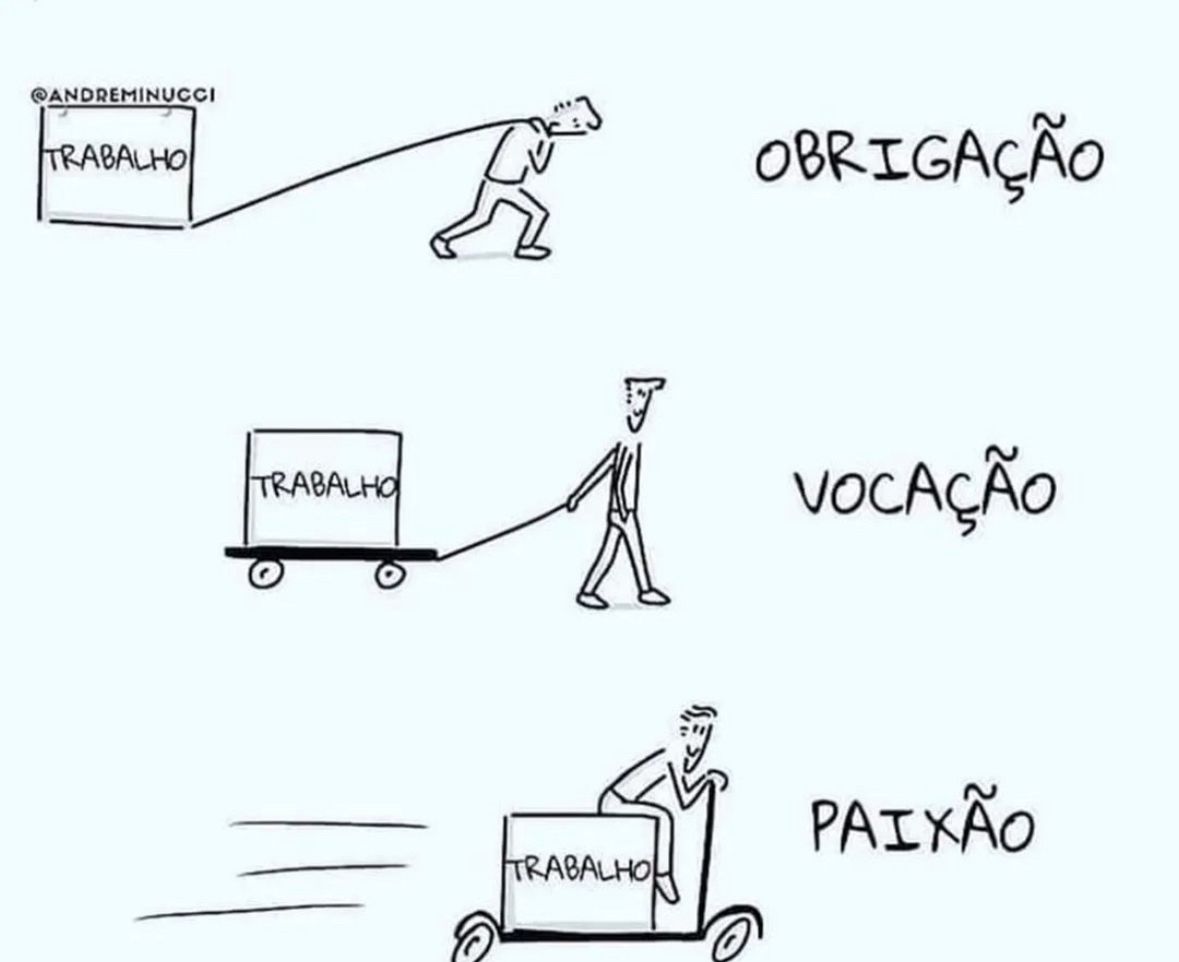 @ANDREMINUCCI
TRABALHO
OBRIGAÇÃO
TRABALHO
VOCAÇÃO
TRABALHO
PAIXÃO